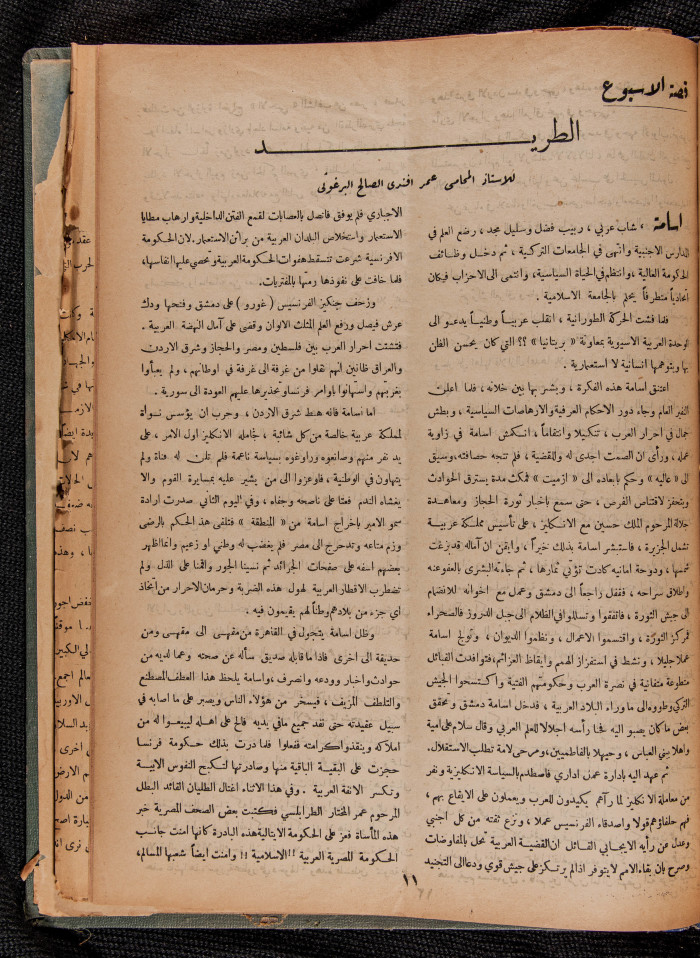 قصة الاسبوع
الطريد
للاستاذ المحامى عمر افندى الصالح البرغوثى
اسامة ، شاب عربي ، ربيب فضل وسليل مجد ، رضع العلم في
المدارس الاجنبية وانتهى في الجامعات التركية ، ثم دخل وظائف
الحكومة العالية ، وانتظم في الحياة السياسية، وانتمى الى الاحزاب فكان
اتحادياً متطرفاً يحلم بالجامعة الاسلامية .
فلما فشت الحركة الطورانية ، انقلب عربياً وطنياً يدعو الى
الوحدة العربية الاسيوية بمعاونة « بريتانيا » ؟؟ التي كان يحسن الظن
بها ويتوهمها انسانية لا استعمارية .
اعتنق اسامة هذه الفكرة ، وبشر بها بين خلانه ، فلما اعلن
النفير العام وجاء دور الاحكام العرفية والارهاصات السياسية ، وبطش
جمال في احرار العرب ، تنكيلا وانتقاماً ، انكمش اسامة في زاوية
عمله ، ورأى ان الصمت اجدى له وللقضية ، فلم تنجه حصافته، وسيق
الى « عاليه » وحكم بابعاده الى « ازميت » فمكث مدة يسترق الحوادث
ويتحفز لاقتناص الفرص ، حتى سمع باخبار ثورة الحجاز ومعاهدة
جلالة المرحوم الملك حسين مع الانكليز ، على تأسيس مملكة عربية
تشمل الجزيرة ، فاستبشر اسامة بذلك خيراً ، وايقن ان آماله قد بزغت
شمسها ، ودوحة امانيه كادت تؤتي ثمارها ، ثم جاءته البشرى بالعفو عنه
واطلاق سراحه ، فقفل راجعاً الى دمشق وعمل مع اخوانه للانضمام
الى جيش الثورة ، فاتفقوا وتسللوا في الظلام الى جبل الدروز فالصحراء
فمركز الثورة ، واقتسموا الاعمال ، ونظموا الديوان ، وتولج اسامة
عملا جليلا ، ونشط في استفزاز الهمم وايقاظ العزائم، فتوافدت القبائل
متطوعة متفانية في نصرة العرب وحكومتهم الفتية واكتسحوا الجيش
التركي وطووه الى ما وراء البلاد العربية ، فدخل اسامة دمشق وتحقق
بعض ما كان يصبو اليه فحنا رأسه اجلالا للعلم العربي وقال سلام على امية
واهلا ببني العباس ، وحيهلا بالفاطميين، ومرحى لامة تطلب الاستقلال.
ثم عهد اليه بادارة عمل اداري فاصطدم بالسياسة الانكليزية ونفر
من معاملة الانكليز لما رآهم يكيدون للعرب ويعملون على الايقاع بهم ،
فهم حلفاؤهم قولا واصدقاء الفرنسيس عملا ، ونزع ثقته من كل اجنبي
وعدل عن رأيه الايجابي القائل ان القضية العربية تحل بالمفاوضات
وصرح بان بقاء الامم لا يتوفر اذا لم يرتكز على جيش قوي ودعا الى التجنيد
الاجباري فلم يوفق فاتصل بالعصابات لقمع الفتن الداخلية وارهاب مطايا
الاستعمار واستخلاص البلدان العربية من براثن الاستعمار. لان الحكومة
الافرنسية شرعت تتسقط هفوات الحكومة العربية وتحصي عليها انفاسها،
فلما خافت على نفوذها رمتها بالمفتريات.
وزحف جنكيز الفرنسيس ( غورو ) على دمشق وفتحها ودك
عرش فيصل ورفع العلم المثلث الالوان وقضى على آمال النهضة العربية .
فتشتت احرار العرب بين فلسطين ومصر والحجاز وشرق الاردن
والعراق ظانين انهم نقلوا من غرفة الى غرفة في اوطانهم ، ولم يعبأوا
بغربتهم واستهانوا باوامر فرنسا وتحذيرها عليهم العودة الى سورية .
اما اسامة فانه هبط شرق الاردن ، وجرب ان يؤسس نواة
لمملكة عربية خالصة من كل شائبة ، فجامله الانكليز اول الامر ، على
يد نفر منهم وصانعوه وراوغوه بسياسة ناعمة فلم تلن له قناة ولم
يتهاون في الوطنية ، فاوعزوا الى من يشير عليه بمسايرة القوم والا
يغشاه الندم فعتا على ناصحه وجفاه ، وفي اليوم الثاني صدرت ارادة
سمو الامير باخراج اسامة من « المنطقة » فتلقى هذا الحكم بالرضى
وزم متاعه وتدحرج الى مصر فلم يغضب له وطني او زعيم وانما اظهر
بعضهم اسفه على صفحات الجرائد ثم نسينا الجور واقمنا على الذل ولم
تضطرب الاقطار العربية لهول هذه الضربة وحرمان الاحرار من اتخاذ
اي جزء من بلادهم وطناً لهم يقيمون فيه .
وظل اسامة يتجول في القاهرة من مقهى الى مقهى ومن
حديقة الى اخرى فاذا ما قابله صديق سأله عن صحته وعما لديه من
حوادث واخبار وودعه وانصرف ، واسامة يلحظ هذا العطف المصطنع
والتلطف المزيف، فيسخر من هؤلاء الناس ويصبر على ما اصابه في
سبيل عقيدته حتى نفد جميع ما في يديه فالح على اهله ليبيعوا له من
املاكه وينقذوا كرامته ففعلوا فلما درت بذلك حكومة فرنسا
حجزت على البقية الباقية منها وصادرتها لتكبح النفوس الابية
وتكسر الانفة العربية . وفي هذا الاثناء اغتال الطليان القائد البطل
المرحوم عمر المختار الطرابلسي فكتبت بعض الصحف المصرية خبر
هذه المأساة فعز على الحكومة الايتالية هذه البادرة كانها امنت جانب
الحكومة المصرية العربية !! الاسلامية !! وامنت ايضاً شعبها المسالم،
١١